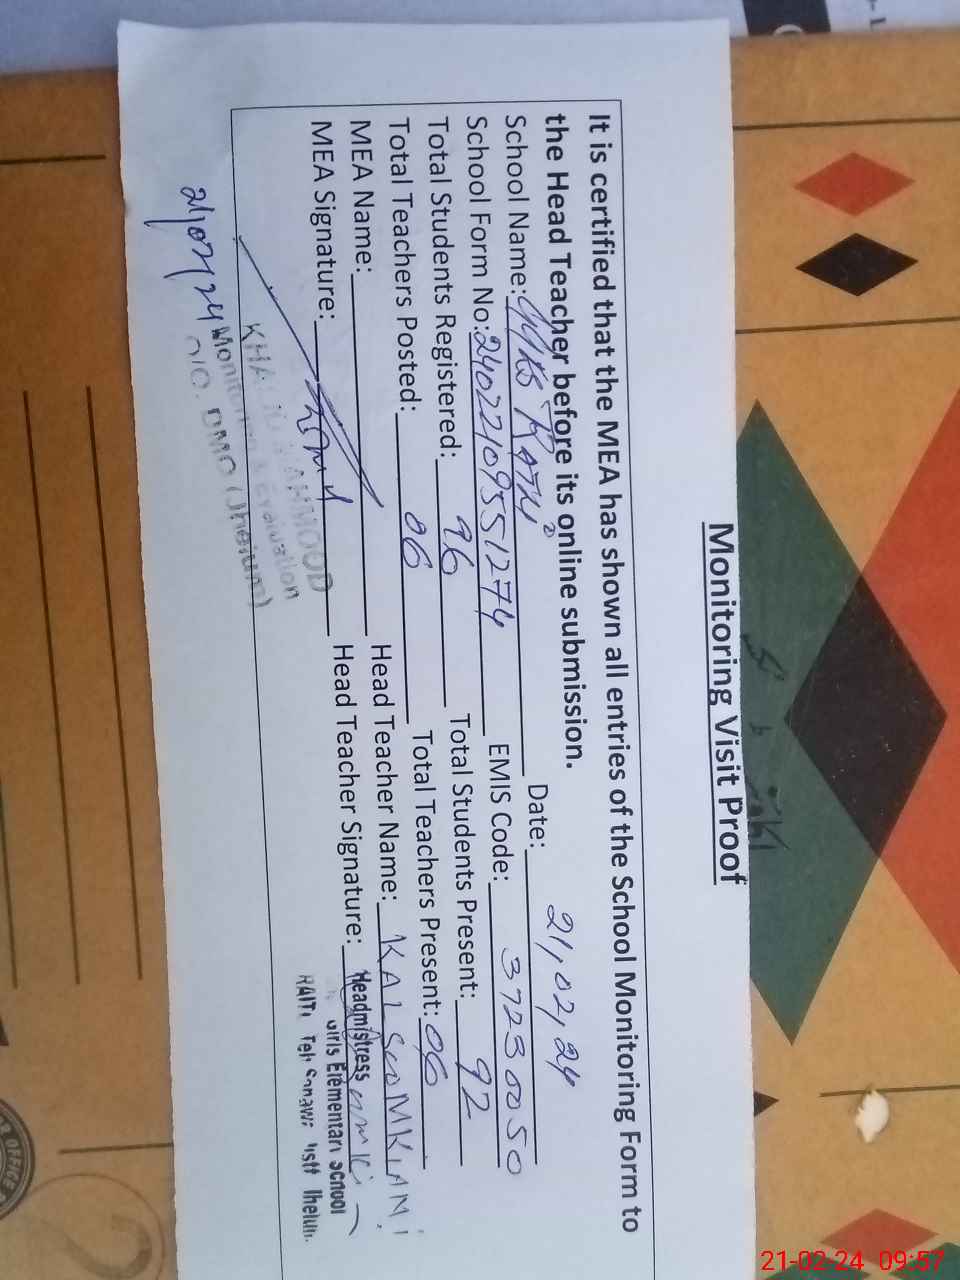 Monitoring Visit Proof
It is certified that the MEA has shown all entries of the School Monitoring Form to
the Head Teacher before its online submission.
School Name: Date: 21,02,24
School Form No: 24022109551274 EMIS Code: 37230050
Total Students Registered: 96 Total Students Present: 92
Total Teachers Posted: 06 Total Teachers Present: 06
MEA Name: Head Teacher Name: KALSOOM
MEA Signature: Head Teacher Signature:
Headmistress
Girls Elementari School
Monitoring & Evaluation
O/O. DMO (Jhelum)
21/02/24
21-02-24 09:57